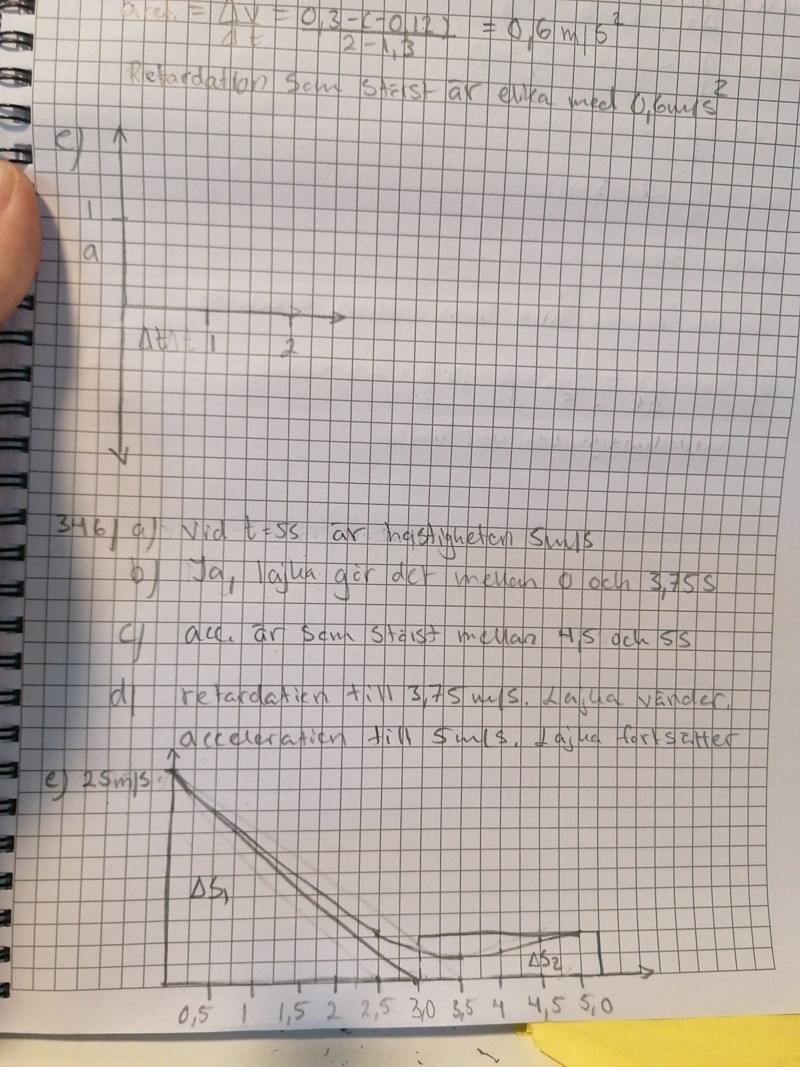 aret. = ΔV/Δt = 0,3-(-0,12)/2-1,3 = 0,6 m/s²
Retardation som störst är elika med 0,6m/s²
e)
1
a
Δt 1 2
346) a) Vid t=5s är hastigheten 5m/s
b) Ja, Lajka gör det mellan 0 och 3,75s
c) acc. är som störst mellan 4,5 och 5s
d) retardation till 3,75 m/s. Lajka vänder.
acceleration till 5m/s. Lajka fortsätter
e) 25m/s
ΔS₁
ΔS₂
0,5 1 1,5 2 2,5 3,0 3,5 4 4,5 5,0